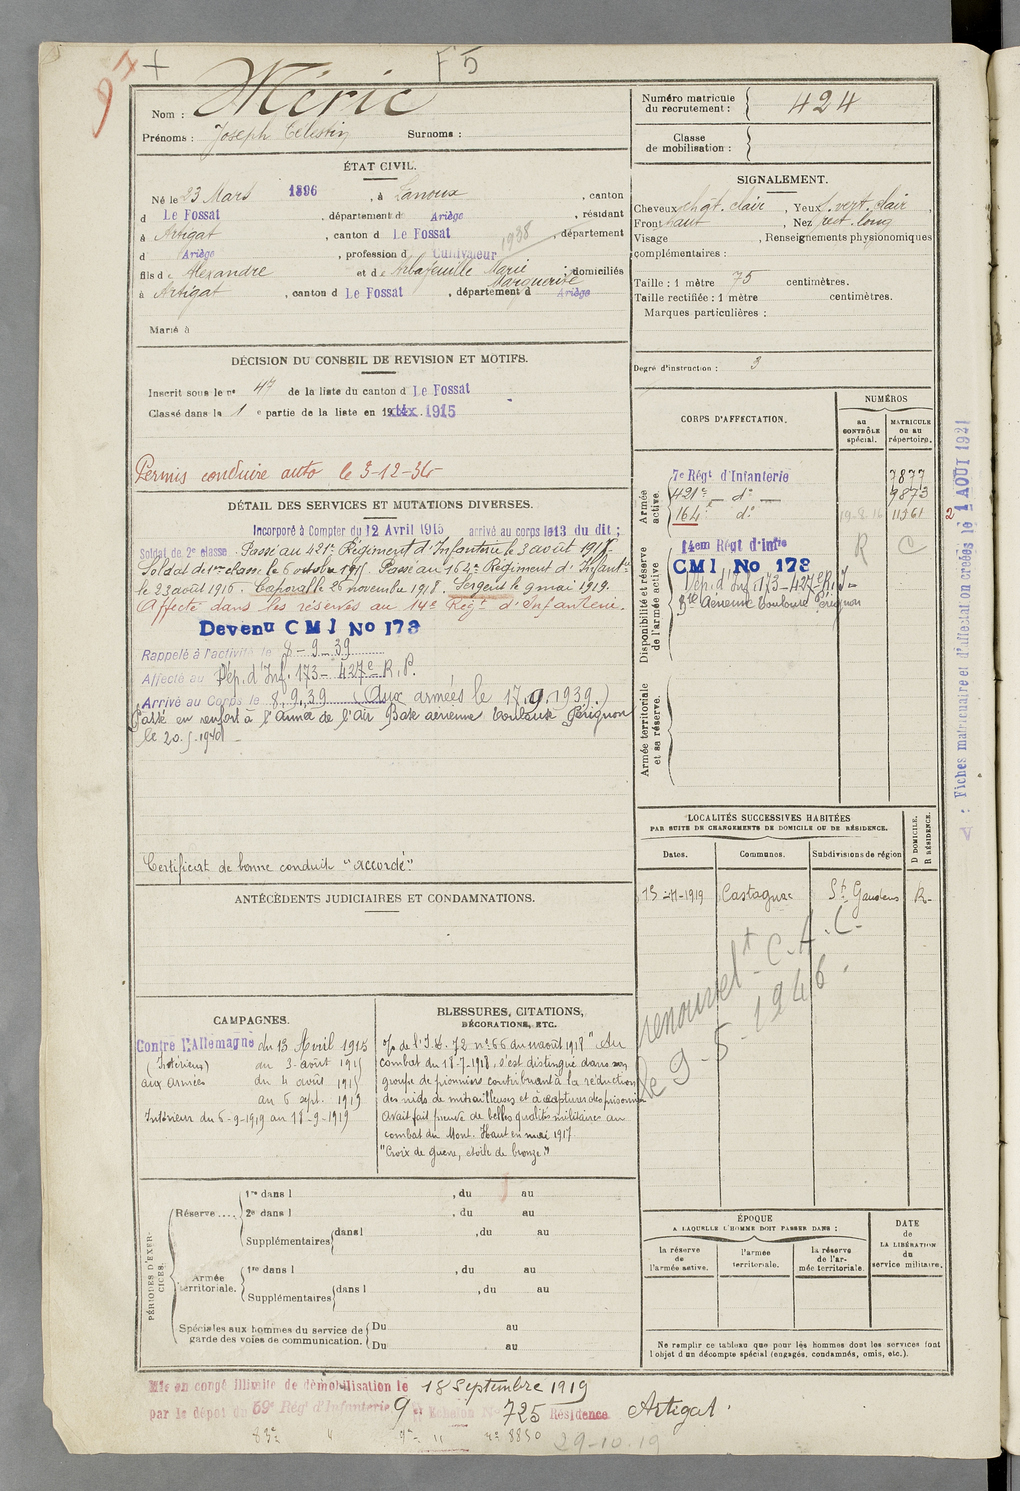 97 +
F5
Nom : Méric
Prénoms : Joseph Célestin Surnoms :
Numéro matricule du recrutement : 424
Classe de mobilisation :
ÉTAT CIVIL.
Né le 23 Mars 1896, à Lanoux, canton
d Le Fossat, département d Ariège, résidant
à Artigat, canton d Le Fossat, département
d Ariège, profession d Cultivateur
1938
fils d e Alexandre et d e Arbafeuille Marie Marguerite, domiciliés
à Artigat, canton d Le Fossat, département d Ariège
Marié à
SIGNALEMENT.
Cheveux chat. clair, Yeux vert clair,
Front haut, Nez rect. long
Visage , Renseignements physionomiques
complémentaires :
Taille : 1 mètre 75 centimètres.
Taille rectifiée : 1 mètre centimètres.
Marques particulières :
Degré d'instruction : 3
DÉCISION DU CONSEIL DE REVISION ET MOTIFS.
Inscrit sous le n° 47 de la liste du canton d Le Fossat
Classé dans la 1 e partie de la liste en 19 1915
Permis conduire auto le 3-12-34
DÉTAIL DES SERVICES ET MUTATIONS DIVERSES.
Incorporé à Compter du 12 Avril 1915 arrivé au corps le 13 du dit ;
Soldat de 2e classe. Passé au 421e Régiment d'Infanterie le 3 août 1915.
Soldat de 1re classe le 6 octobre 1915. Passé au 164e Régiment d'Infantie
le 23 août 1916. Caporal le 26 novembre 1918. Sergent le 9 mai 1919.
Affecté dans les réserves au 14e Régt d'Infanterie.
Devenu CMI No 173
Rappelé à l'activité le 8-9-39
Affecté au Dép. d'Inf. 173 - 427e R.P.
Arrivé au Corps le 8.9.39 (Aux armées le 17.9.1939.)
Passé en renfort à l'Armée de l'air Base aérienne Toulouse Pérignon
le 20-5-1940
Certificat de bonne conduite "accordé".
CORPS D'AFFECTATION.
NUMÉROS
au CONTRÔLE spécial.
MATRICULE ou au répertoire.
Armée active.
7e Régt d'Infanterie 7877
421e d° 7873
164e d° 19-8-16 11161
2
Disponibilité et réserve de l'armée active.
14em Régt d'Infie R C
CMI No 173
Dép. d'Inf 173-427e R.P-
Bse Aérienne Toulouse Pérignon
Armée territoriale et sa réserve.
: Fiches matriculaire et d'affectation créées le 1 AOUT 1921
LOCALITÉS SUCCESSIVES HABITÉES
PAR SUITE DE CHANGEMENTS DE DOMICILE OU DE RÉSIDENCE.
Dates. Communes. Subdivisions de région D DOMICILE. R RÉSIDENCE.
13-11-1919 Castagnac St Gaudens R-
renouvelt C.A.C.
le 9-5-1946.
ANTÉCÉDENTS JUDICIAIRES ET CONDAMNATIONS.
CAMPAGNES.
Contre l'Allemagne du 13 Avril 1915
(Intérieur) au 3 août 1915
aux Armées du 4 août 1915
au 5 sept. 1919
Intérieur du 6-9-1919 au 18-9-1919
BLESSURES, CITATIONS,
DÉCORATIONS, ETC.
O/ de l'I.D. 72 n° 66 du 11 août 1918 "Au
combat du 18-7-1918, s'est distingué dans son
groupe de pionniers contribuant à la réduction
des nids de mitrailleuses et à capturer des prisonniers
avait fait preuve de belles qualités militaires au
combat du Mont. Haut en mai 1917.
"Croix de guerre, étoile de bronze."
PÉRIODES D'EXERCICES.
Réserve ....
1re dans l , du au
2e dans l , du au
Supplémentaires dans l , du au
Armée territoriale.
1re dans l , du au
Supplémentaires dans l , du au
Spéciales aux hommes du service de garde des voies de communication.
Du au
Du au
ÉPOQUE
A LAQUELLE L'HOMME DOIT PASSER DANS :
la réserve de l'armée active.
l'armée territoriale.
la réserve de l'armée territoriale.
DATE
de
LA LIBÉRATION
du
service militaire.
Ne remplir ce tableau que pour les hommes dont les services font
l'objet d'un décompte spécial (engagés, condamnés, omis, etc.).
Mis en congé illimité de démobilisation le 18 Septembre 1919
par le dépôt du 59e Rég d'Infanterie 9e Échelon No 725 Résidence Artigat.
83e " 9e " n° 8850 29-10-19